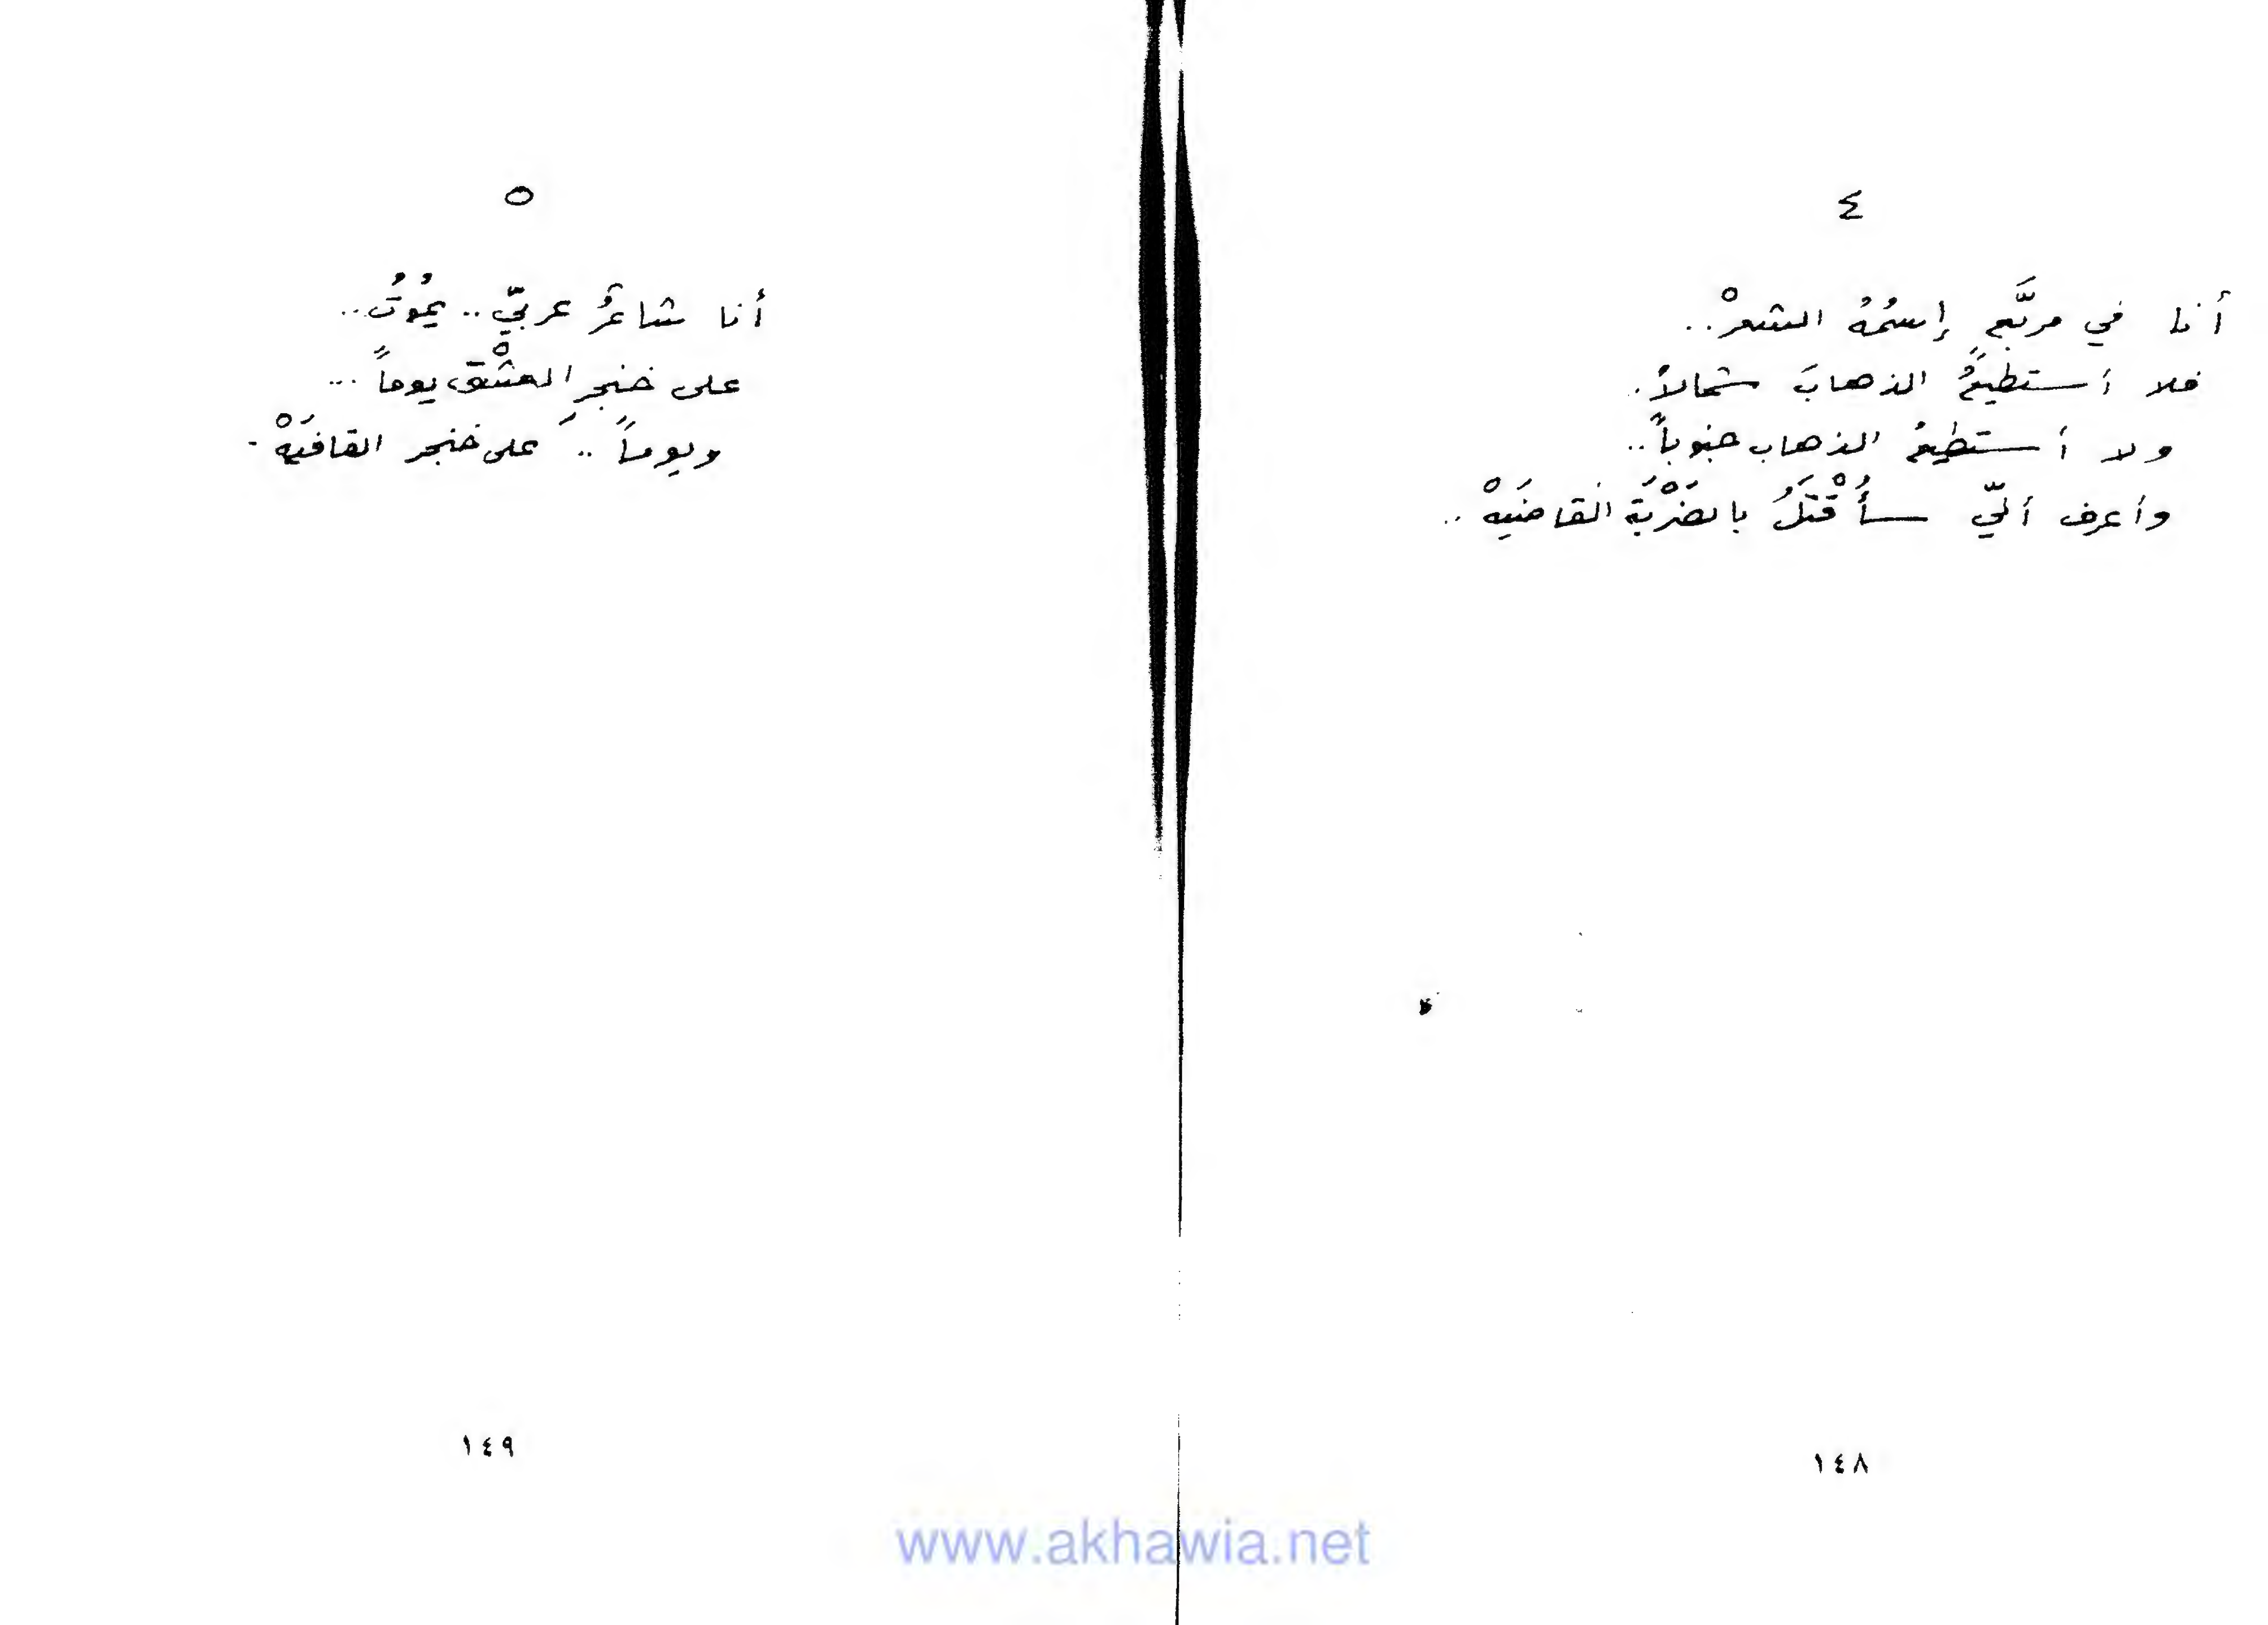 ٤
أنا في مربَّعٍ إسمُهُ الشعرْ..
فلا أستطيعُ الذهابَ شمالاً.
ولا أستطيعُ الذهاب جنوباً..
وأعرف أنّي سأُقْتَلُ بالضَرْبَة القاضيَهْ..
١٤٨
٥
أنا شاعرٌ عربيّ.. يمُوتُ...
على خنجرِ العشْق يوماً...
ويوماً.. على خنجر القافيَهْ.
١٤٩
www.akhawia.net